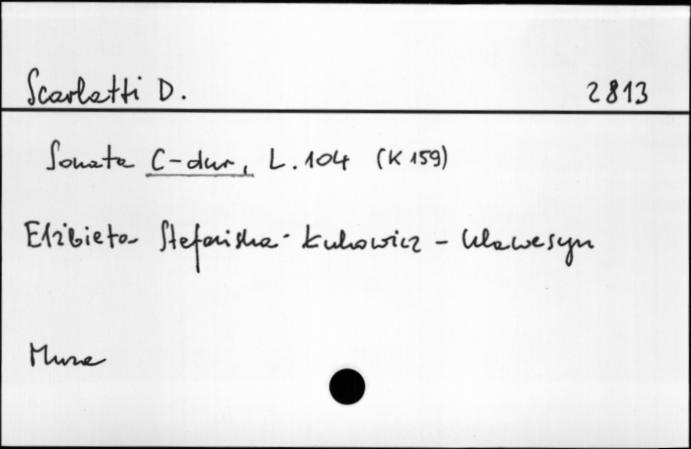 Scarlatti D. 2813
Sonata C-dur, L. 104 (K 159)
Elżbieta Stefańska-Łukowicz - klawesyn
Muza